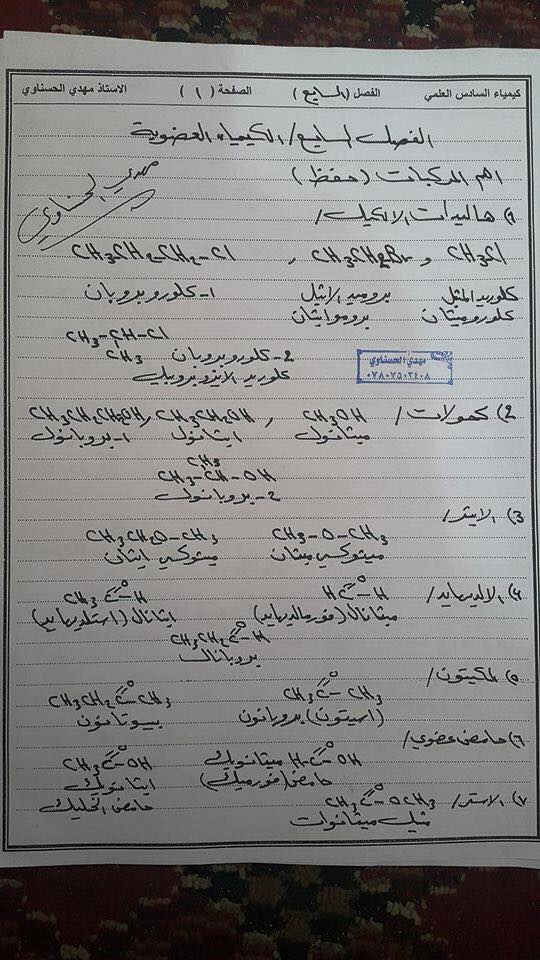 كيمياء السادس العلمي الفصل (السابع) الصفحة (١) الاستاذ مهدي الحسناوي
الفصل السابع / الكيمياء العضوية
اهم المركبات (حفظ)
مهدي الحسناوي
1) هاليدات الالكيل /
CH3Cl و CH3CH2Br , CH3-CH2-CH2-Cl
كلوريد المثيل بروميد الاثيل 1- كلوروبروبان
كلوروميثان بروموايثان
CH3-CH-Cl
CH3
2- كلوروبروبان
كلوريد الايزوبروبيل
مهدي الحسناوي
٠٧٨٠٧٥٠٣٤٠٨
2) كحولات / CH3OH , CH3CH2OH , CH3CH2CH2OH
ميثانول ايثانول 1- بروبانول
CH3
CH3-CH-OH
2- بروبانول
3) الايثر /
CH3-O-CH3 CH3CH2O-CH3
ميثوكسي ميثان ميثوكسي ايثان
4) الالديهايد / HC-H CH3C-H
O O
ميثانال (فورمالديهايد) ايثانال (استلديهايد)
O
CH3CH2C-H
بروبانال
٥) الكيتون /
O O
CH3C-CH3 CH3CH2C-CH3
(اسيتون) بروبانون بيوتانون
٦) حامض عضوي /
O O
H-C-OH ميثانويك CH3C-OH
حامض (فورميك) ايثانويك
حامض الخليك
٧) الاستر / O
CH3C-OCH3
مثيل ميثانوات